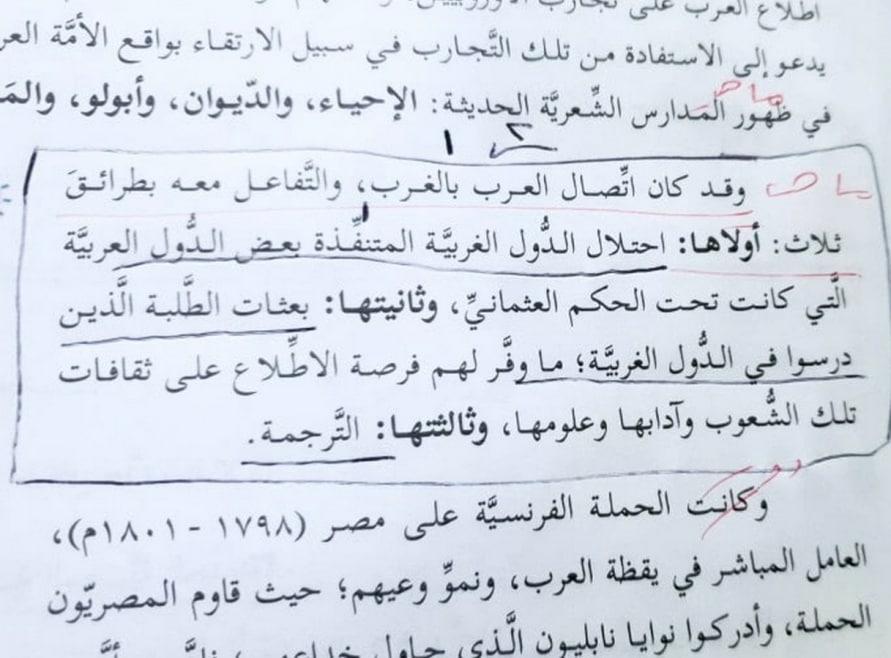 اطلاع العرب على تجارب
يدعو إلى الاستفادة من تلك التَّجارب في سبيل الارتقاء بواقع الأمَّة
في ظهور المَدارس الشِّعريَّة الحديثة: الإحياء، والدّيوان، وأبولو،
وقد كان اتِّصال العرب بالغرب، والتَّفاعل معه بطرائقَ
ثلاث: أولاها: احتلال الدُّول الغربيَّة المتنفِّذة بعض الدُّول العربيَّة
الَّتي كانت تحت الحكم العثمانيِّ، وثانيتها: بعثات الطَّلبة الَّذين
درسوا في الدُّول الغربيَّة؛ ما وفَّر لهم فرصة الاطِّلاع على ثقافات
تلك الشُّعوب وآدابها وعلومها، وثالثتها: التَّرجمة.
وكانت الحملة الفرنسيَّة على مصر (١٧٩٨ - ١٨٠١م)،
العامل المباشر في يقظة العرب، ونموِّ وعيهم؛ حيث قاوم المصريّون
الحملة، وأدركوا نوايا نابليون الَّذي حاول